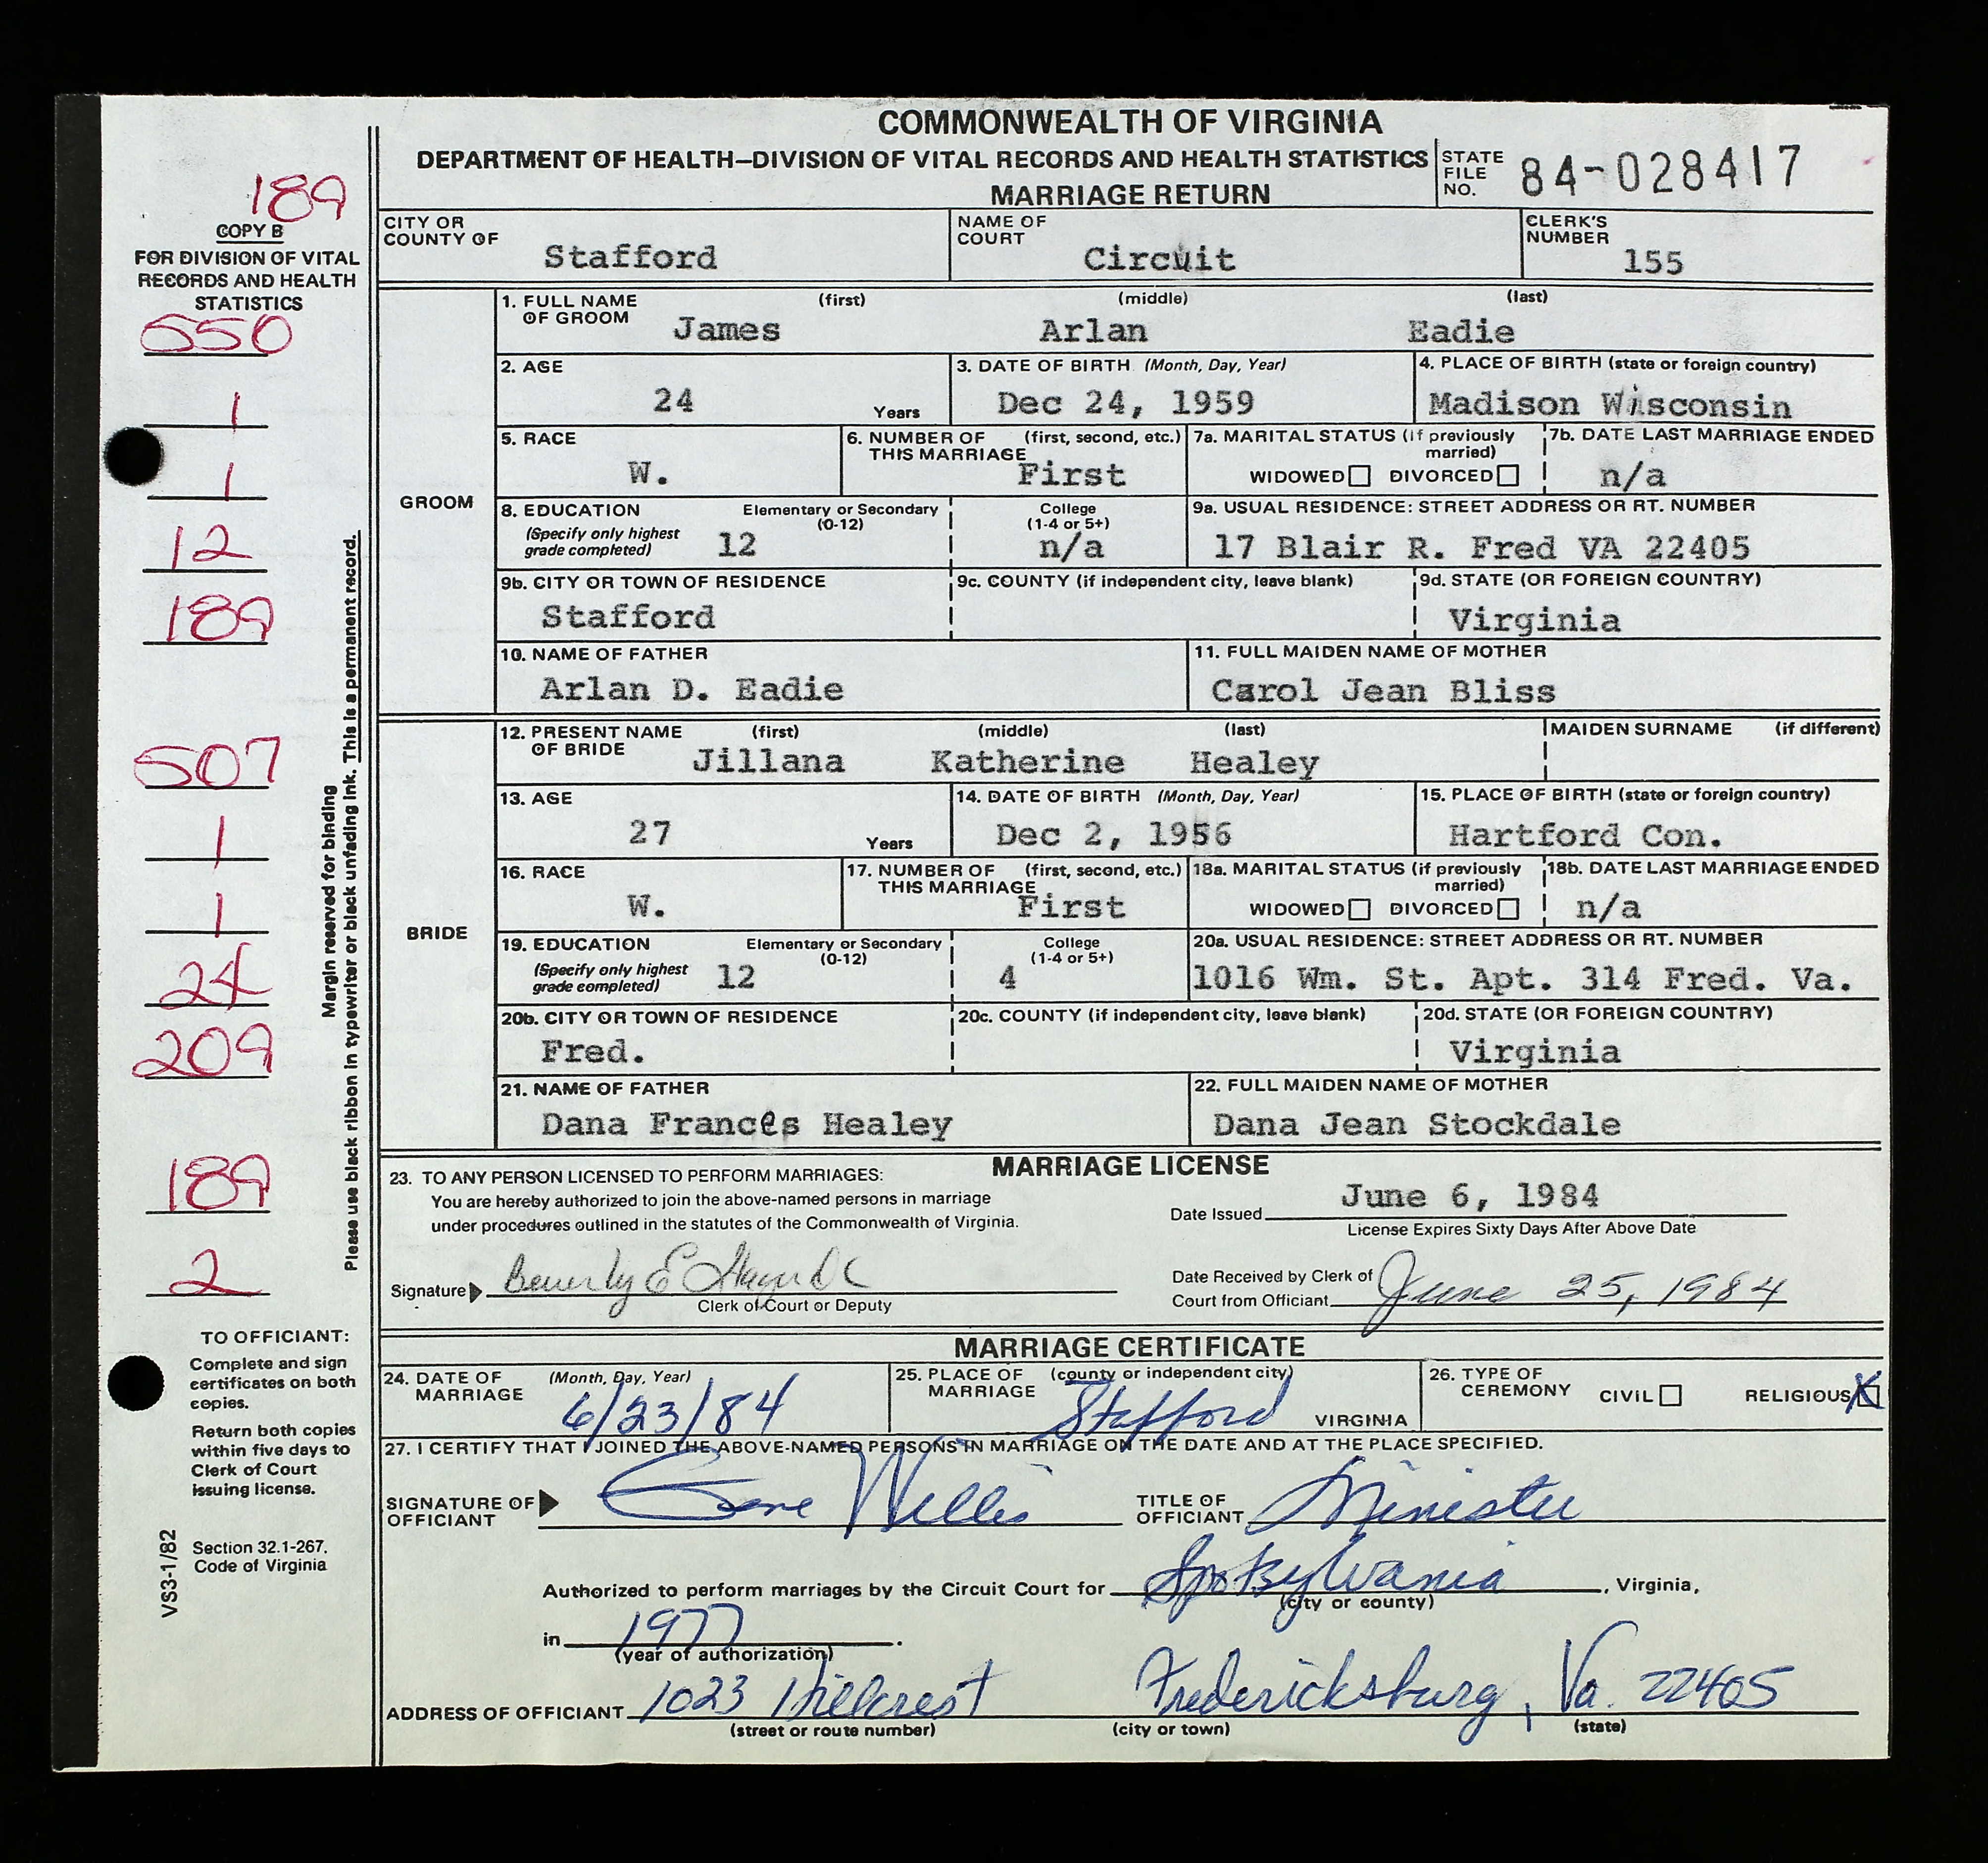 COMMONWEALTH OF VIRGINIA
DEPARTMENT OF HEALTH—DIVISION OF VITAL RECORDS AND HEALTH STATISTICS
MARRIAGE RETURN
STATE FILE NO. 84-028417
189
COPY B
FOR DIVISION OF VITAL
RECORDS AND HEALTH
STATISTICS
550
1
1
12
189
507
1
1
24
209
189
2
Margin reserved for binding
Please use black ribbon in typewriter or black unfading ink. This is a permanent record.
TO OFFICIANT:
Complete and sign
certificates on both
copies.
Return both copies
within five days to
Clerk of Court
issuing license.
Section 32.1-267,
Code of Virginia
VS3-1/82
CITY OR COUNTY OF Stafford
NAME OF COURT Circuit
CLERK'S NUMBER 155
GROOM
1. FULL NAME OF GROOM (first) James (middle) Arlan (last) Eadie
2. AGE 24 Years
3. DATE OF BIRTH (Month, Day, Year) Dec 24, 1959
4. PLACE OF BIRTH (state or foreign country) Madison Wisconsin
5. RACE W.
6. NUMBER OF THIS MARRIAGE (first, second, etc.) First
7a. MARITAL STATUS (if previously married) WIDOWED DIVORCED
7b. DATE LAST MARRIAGE ENDED n/a
8. EDUCATION (Specify only highest grade completed) Elementary or Secondary (0-12) 12 College (1-4 or 5+) n/a
9a. USUAL RESIDENCE: STREET ADDRESS OR RT. NUMBER 17 Blair R. Fred VA 22405
9b. CITY OR TOWN OF RESIDENCE Stafford
9c. COUNTY (if independent city, leave blank)
9d. STATE (OR FOREIGN COUNTRY) Virginia
10. NAME OF FATHER Arlan D. Eadie
11. FULL MAIDEN NAME OF MOTHER Carol Jean Bliss
BRIDE
12. PRESENT NAME OF BRIDE (first) Jillana (middle) Katherine (last) Healey
MAIDEN SURNAME (if different)
13. AGE 27 Years
14. DATE OF BIRTH (Month, Day, Year) Dec 2, 1956
15. PLACE OF BIRTH (state or foreign country) Hartford Con.
16. RACE W.
17. NUMBER OF THIS MARRIAGE (first, second, etc.) First
18a. MARITAL STATUS (if previously married) WIDOWED DIVORCED
18b. DATE LAST MARRIAGE ENDED n/a
19. EDUCATION (Specify only highest grade completed) Elementary or Secondary (0-12) 12 College (1-4 or 5+) 4
20a. USUAL RESIDENCE: STREET ADDRESS OR RT. NUMBER 1016 Wm. St. Apt. 314 Fred. Va.
20b. CITY OR TOWN OF RESIDENCE Fred.
20c. COUNTY (if independent city, leave blank)
20d. STATE (OR FOREIGN COUNTRY) Virginia
21. NAME OF FATHER Dana Frances Healey
22. FULL MAIDEN NAME OF MOTHER Dana Jean Stockdale
MARRIAGE LICENSE
23. TO ANY PERSON LICENSED TO PERFORM MARRIAGES:
You are hereby authorized to join the above-named persons in marriage
under procedures outlined in the statutes of the Commonwealth of Virginia.
Date Issued June 6, 1984
License Expires Sixty Days After Above Date
Signature Beverly E
Clerk of Court or Deputy
Date Received by Clerk of
Court from Officiant June 25, 1984
MARRIAGE CERTIFICATE
24. DATE OF MARRIAGE (Month, Day, Year) 6/23/84
25. PLACE OF MARRIAGE (county or independent city) Stafford VIRGINIA
26. TYPE OF CEREMONY CIVIL RELIGIOUS X
27. I CERTIFY THAT I JOINED THE ABOVE-NAMED PERSONS IN MARRIAGE ON THE DATE AND AT THE PLACE SPECIFIED.
SIGNATURE OF OFFICIANT Gene Willis
TITLE OF OFFICIANT Minister
Authorized to perform marriages by the Circuit Court for Spotsylvania, Virginia,
(city or county)
in 1977.
(year of authorization)
ADDRESS OF OFFICIANT 1023 Hillcrest Fredericksburg, Va. 22405
(street or route number) (city or town) (state)